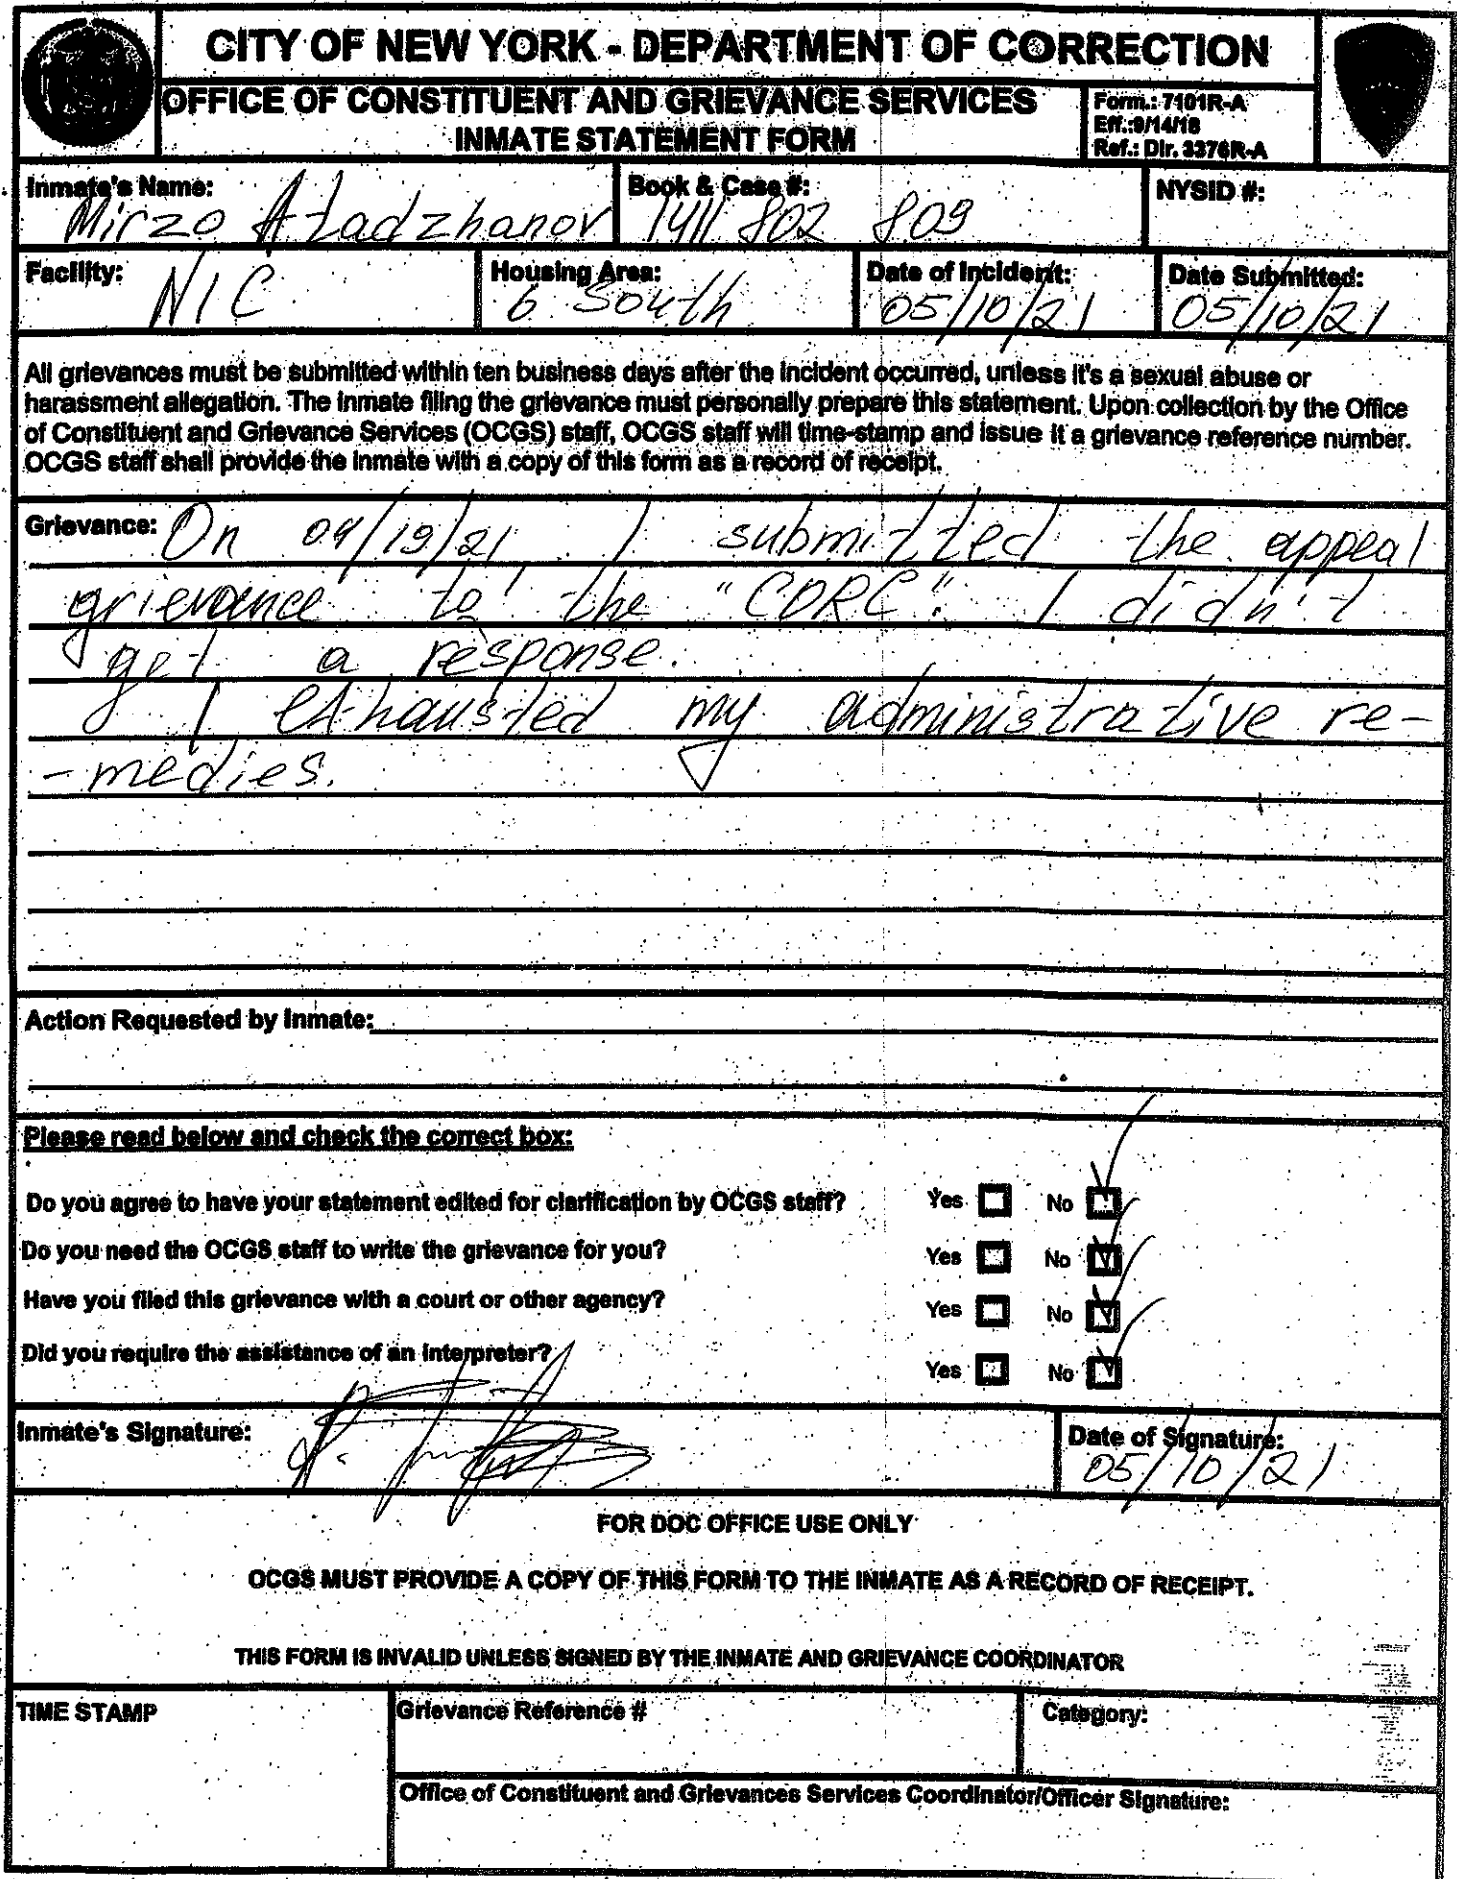 CITY OF NEW YORK - DEPARTMENT OF CORRECTION
OFFICE OF CONSTITUENT AND GRIEVANCE SERVICES
INMATE STATEMENT FORM
Form.: 7101R-A
Eff.:9/14/18
Ref.: Dir. 3376R-A
Inmate's Name:
Mirzo Atadzhanov
Book & Case #:
1411 802 809
NYSID #:
Facility:
NIC
Housing Area:
6 South
Date of Incident:
05/10/21
Date Submitted:
05/10/21
All grievances must be submitted within ten business days after the incident occurred, unless it's a sexual abuse or
harassment allegation. The inmate filing the grievance must personally prepare this statement. Upon collection by the Office
of Constituent and Grievance Services (OCGS) staff, OCGS staff will time-stamp and issue it a grievance reference number.
OCGS staff shall provide the inmate with a copy of this form as a record of receipt.
Grievance: On 04/19/21 I submitted the appeal
grievance to the "CORC". I didn't
get a response.
I exhausted my administrative re-
-medies.
Action Requested by Inmate:
Please read below and check the correct box:
Do you agree to have your statement edited for clarification by OCGS staff? Yes No
Do you need the OCGS staff to write the grievance for you? Yes No
Have you filed this grievance with a court or other agency? Yes No
Did you require the assistance of an interpreter? Yes No
Inmate's Signature:
Date of Signature:
05/10/21
FOR DOC OFFICE USE ONLY
OCGS MUST PROVIDE A COPY OF THIS FORM TO THE INMATE AS A RECORD OF RECEIPT.
THIS FORM IS INVALID UNLESS SIGNED BY THE INMATE AND GRIEVANCE COORDINATOR
TIME STAMP
Grievance Reference #
Category:
Office of Constituent and Grievances Services Coordinator/Officer Signature: